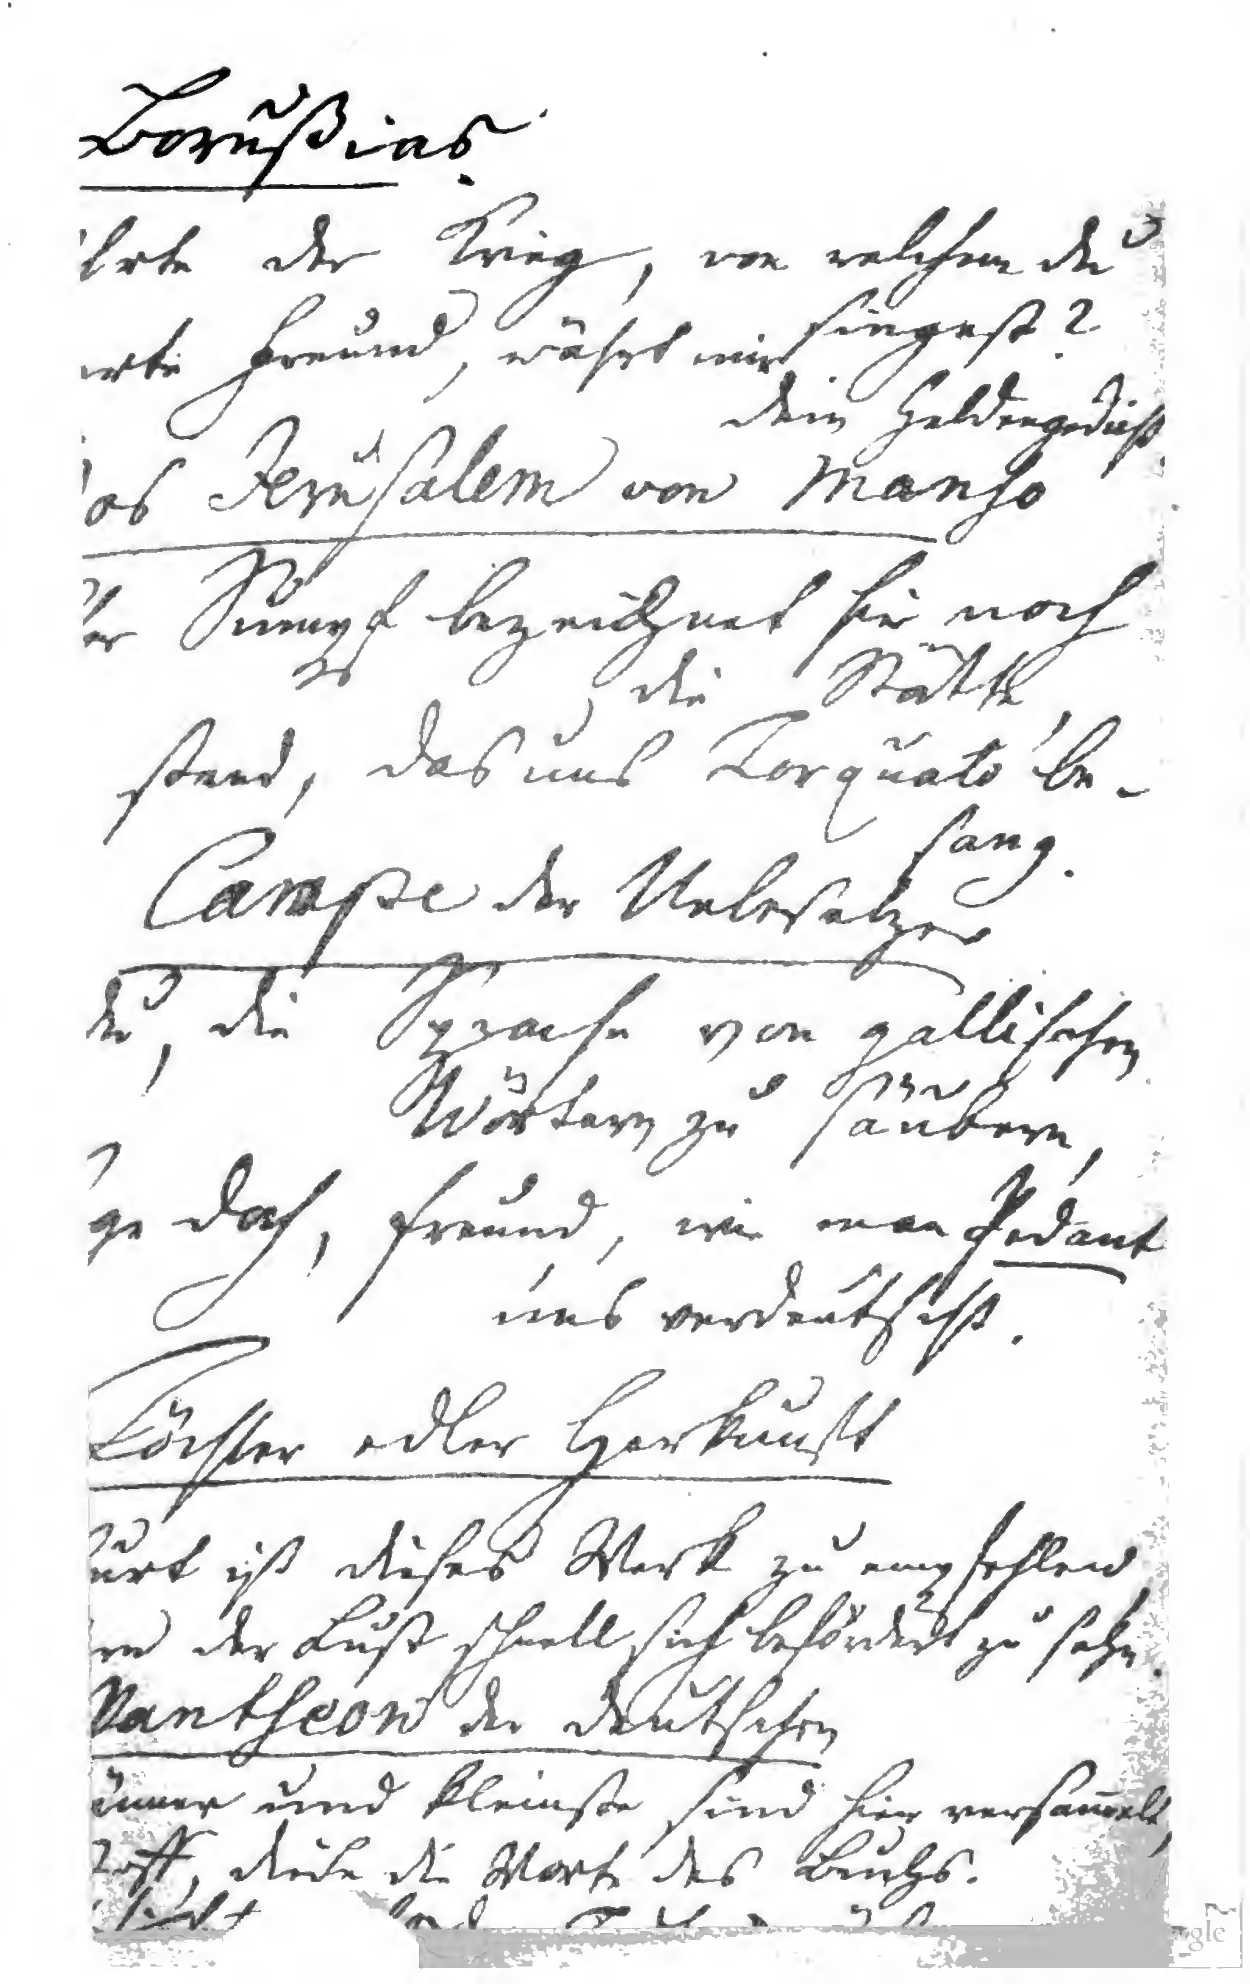 Borußias.
der Krieg, von welchem du
singest?
Freund, währt mir
dein Heldengedicht.
Jerusalem von Manso
Sumpf bezeichnet hir noch
die Stätte,
stand, das uns Torquato be-
sang.
Campe der Uebersetzer
die Sprache von gallischen
Wörtern zu säubern,
ge doch, Freund, wie man Pedant
uns verdeutscht.
Töchter edler Herkunft
ist dieses Werk zu empfehlen,
der Lust schnell sich befördert zu sehn.
Pantheon der deutschen
und kleinste sind hier versammelt,
Stoff, die Worte des Buchs.
gle